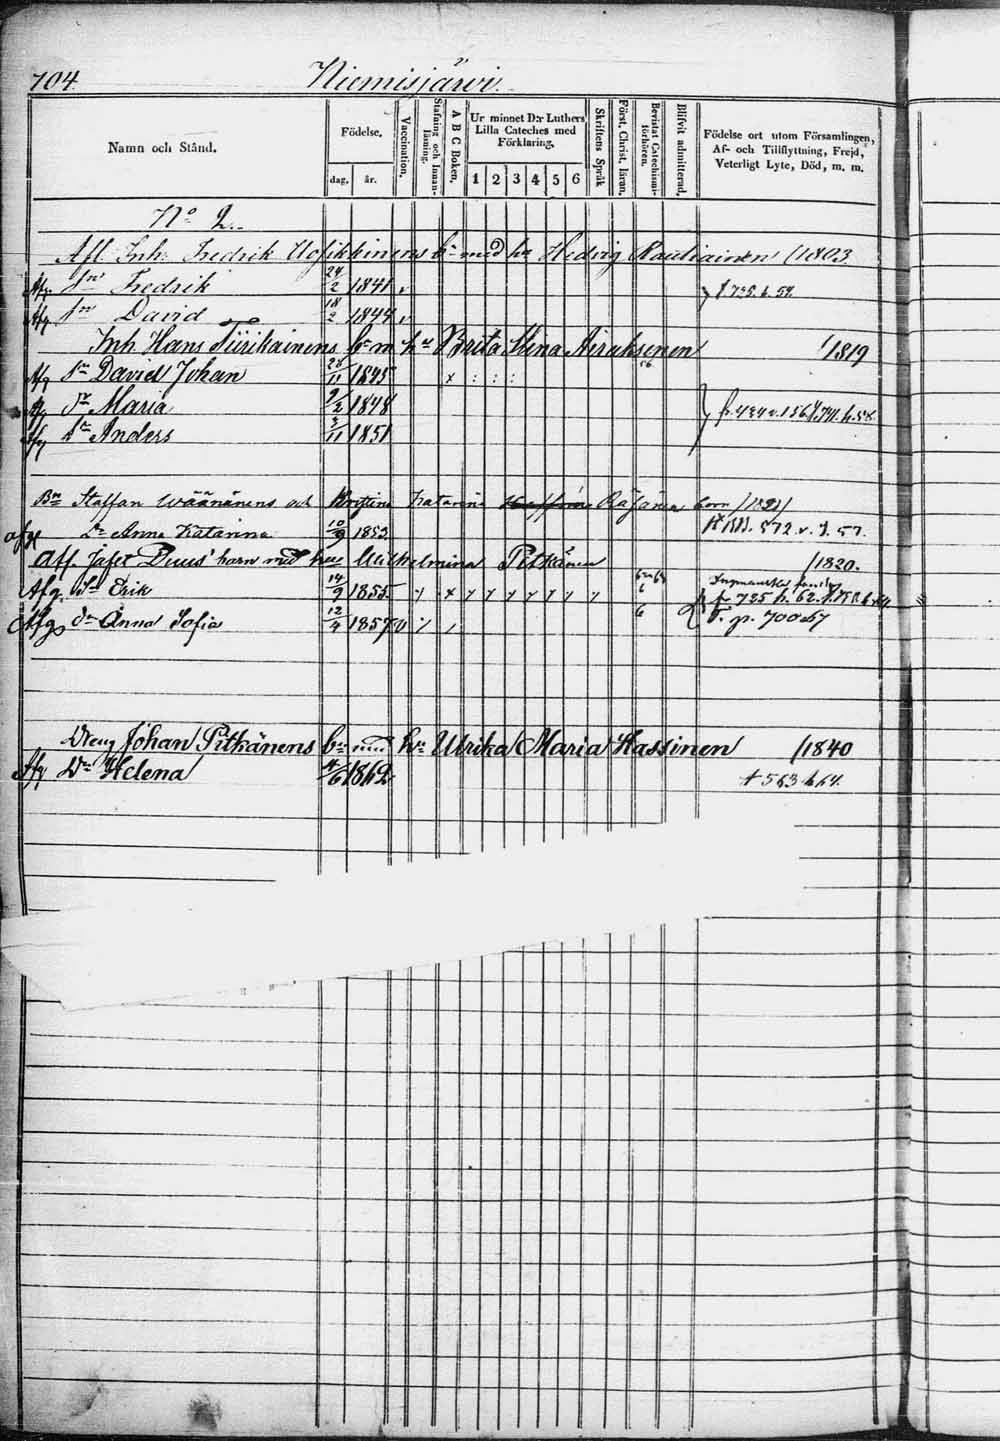 704. Niemisjärvi.
Namn och Stånd.
Födelse.
dag. år.
Vaccination.
Stafning och Innan-läsning.
A B C Boken.
Ur minnet D:r Luthers
Lilla Cateches med
Förklaring.
1 2 3 4 5 6
Skriftens Språk
Först. Christ. läran.
Bevistat Catechismi-förhören.
Blifvit admitterad.
Födelse ort utom Församlingen,
Af- och Tillflyttning, Frejd,
Veterligt Lyte, Död, m. m.
No 2.
Afl. Inh. Fredrik barn med hu Hedvig Rautiainen /1803
Afg. Sn Fredrik 24/2 1841 v
Afg Sn David 18/2 1844 v
Inh. Hans Tiirikainens bn m hu Brita Stina Airaksinen /1819
Afg Sn David Johan 28/11 1845 x : : :
Afg Dr Maria 9/2 1848
Afg Sn Anders 3/11 1851
Bn Staffan Wäänänens och Kristina Katarina Räsänen barn /1821/
afg Dr Anna Katarina 10/9 1853
Afl. Jafet Duus' barn med hu Wilhelmina Pitkänen /1820.
Afg. Sn Erik 14/9 1855
Afg dr Anna Sofia 12/4 1857 v
Dreng Johan Pitkänens bn med hu Ulrika Maria Hassinen /1840
Afg Dr Helena 4/6 1862 + 563 64.